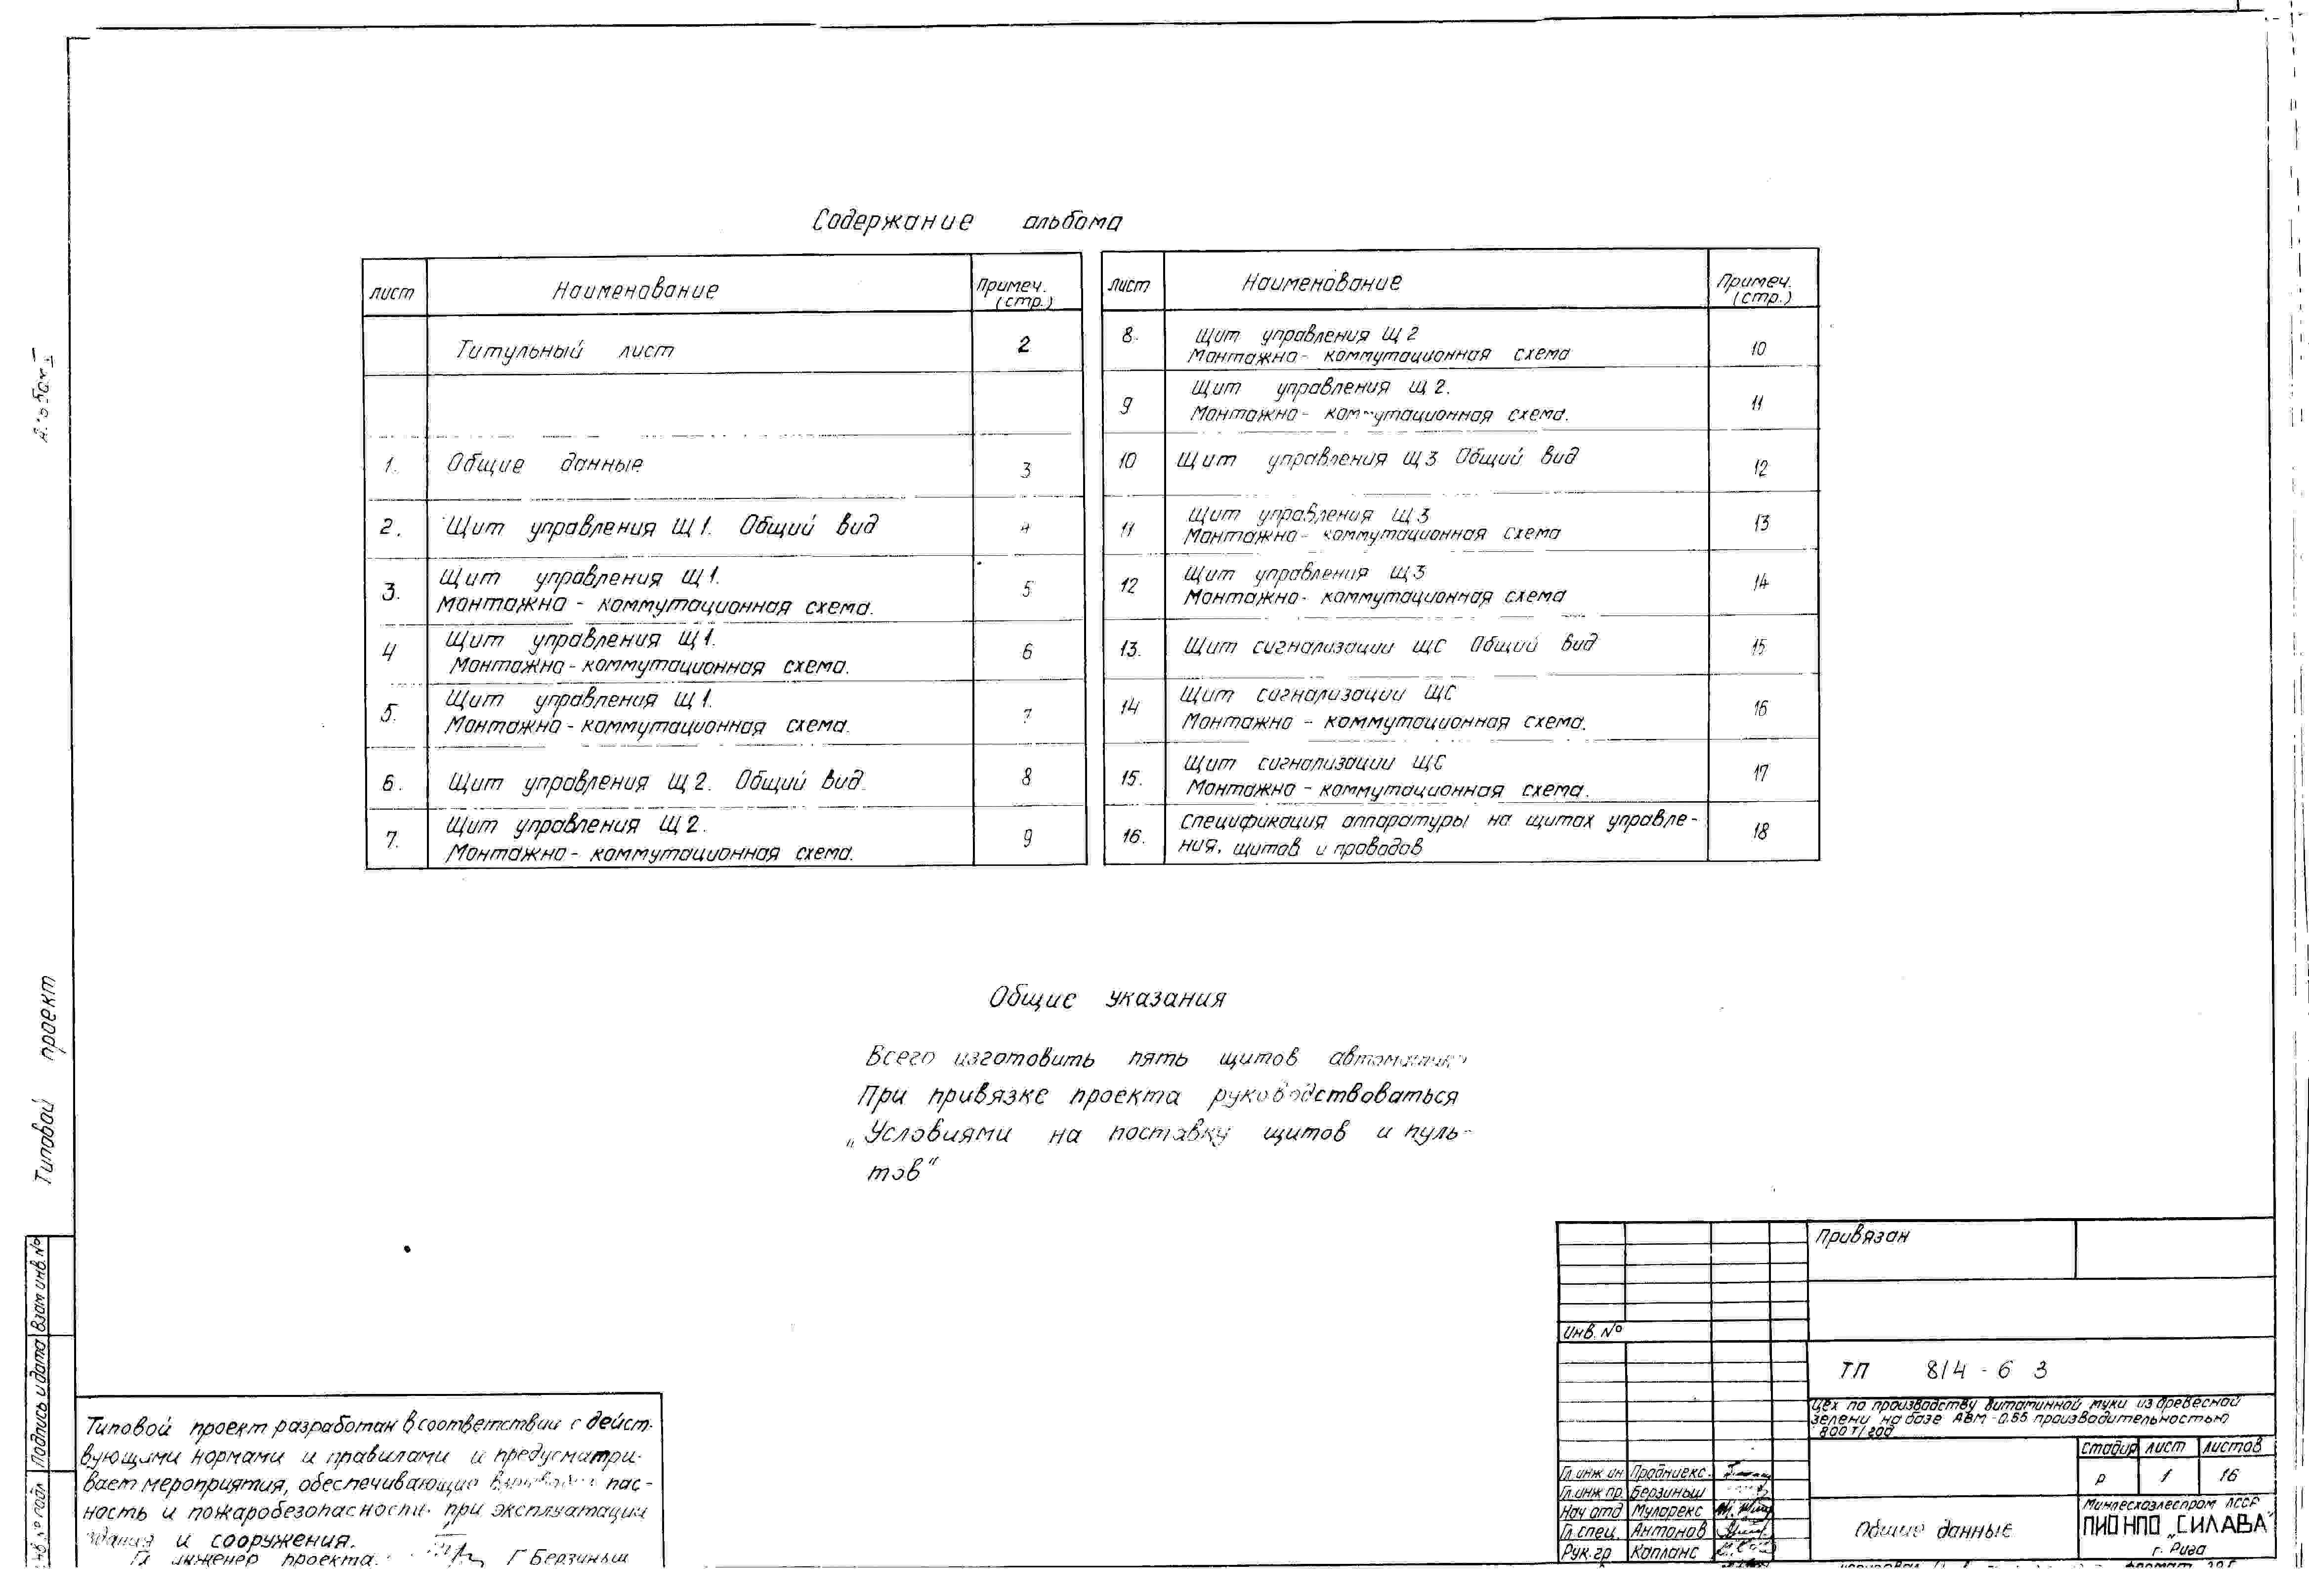 Содержание альбома
лист Наименование Примеч. (стр.)
Титульный лист 2
1. Общие данные 3
2. Щит управления Щ1. Общий вид 4
3. Щит управления Щ1. 5
Монтажно - коммутационная схема.
4 Щит управления Щ1. 6
Монтажно - коммутационная схема.
5. Щит управления Щ1. 7
Монтажно - коммутационная схема.
6. Щит управления Щ2. Общий вид 8
7. Щит управления Щ2. 9
Монтажно - коммутационная схема.
лист Наименование Примеч. (стр.)
8. Щит управления Щ2 10
Монтажно - коммутационная схема
9 Щит управления Щ2. 11
Монтажно - коммутационная схема.
10 Щит управления Щ3 Общий вид 12
11 Щит управления Щ3 13
Монтажно - коммутационная схема
12 Щит управления Щ3 14
Монтажно - коммутационная схема
13. Щит сигнализации ЩС Общий вид 15
14 Щит сигнализации ЩС 16
Монтажно - коммутационная схема.
15. Щит сигнализации ЩС 17
Монтажно - коммутационная схема.
16. Спецификация аппаратуры на щитах управле- 18
ния, щитов и проводов
Общие указания
Всего изготовить пять щитов
При привязке проекта руководствоваться
„Условиями на поставку щитов и пуль-
тов“
Типовой проект
Взам инв. №
Подпись и дата
Типовой проект разработан в соответствии с дейст-
вующими нормами и правилами и предусматри-
вает мероприятия, обеспечивающие
ность и пожаробезопасность при эксплуатации
здания и сооружения.
Гл инженер проекта Г Берзиньш
Привязан
Инв. №
ТП 814-6 3
Цех по производству витаминной муки из древесной
зелени на базе АВМ-0.65 производительностью
800 т/год
стадия лист листов
р 1 16
Гл. инж ин Прадниекс.
Гл. инж пр. Берзиньш
Нач отд Муларекс
Гл. спец. Антонов
Рук. гр Капланс
Общие данные
Минлесхозлеспром ЛССР
ПИО НПО „СИЛАВА“
г. Рига